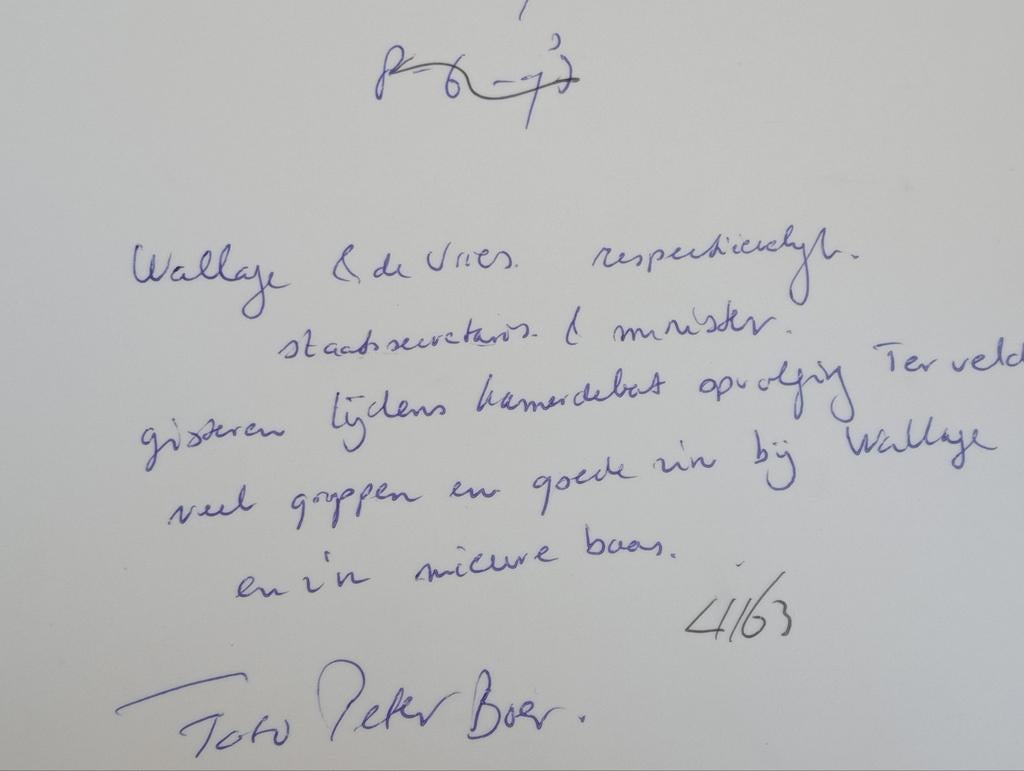 8-6-'93
Wallage & de Vries. respectievelijk.
staatssecretaris. & minister.
gisteren tijdens kamerdebat opvolging Ter veld
veel grappen en goede zin bij Wallage
en z'n nieuwe baas.
41/63
Foto Peter Boer.